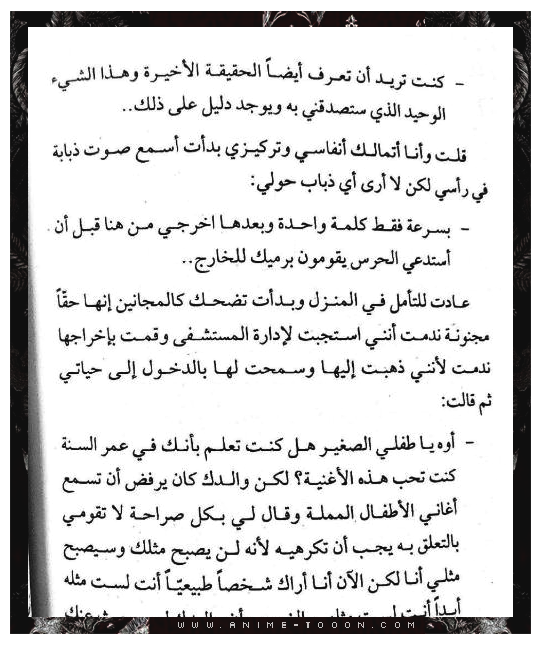 - كنت تريد أن تعرف أيضاً الحقيقة الأخيرة وهذا الشيء
الوحيد الذي ستصدقني به ويوجد دليل على ذلك..
قلت وأنا أتمالك أنفاسي وتركيزي بدأت أسمع صوت ذبابة
في رأسي لكن لا أرى أي ذباب حولي:
- بسرعة فقط كلمة واحدة وبعدها اخرجي من هنا قبل أن
أستدعي الحرس يقومون برميك للخارج..
عادت للتأمل في المنزل وبدأت تضحك كالمجانين إنها حقّاً
مجنونة ندمت أنني استجبت لإدارة المستشفى وقمت بإخراجها
ندمت لأنني ذهبت إليها وسمحت لها بالدخول إلى حياتي
ثم قالت:
- أوه يا طفلي الصغير هل كنت تعلم بأنك في عمر السنة
كنت تحب هذه الأغنية؟ لكن والدك كان يرفض أن تسمع
أغاني الأطفال المملة وقال لي بكل صراحة لا تقومي
بالتعلق به يجب أن تكرهيه لأنه لن يصبح مثلك وسيصبح
مثلي أنا لكن الآن أنا أراك شخصاً طبيعيّاً أنت لست مثله
أبداً أنت
WWW.ANIME-TOOON.COM